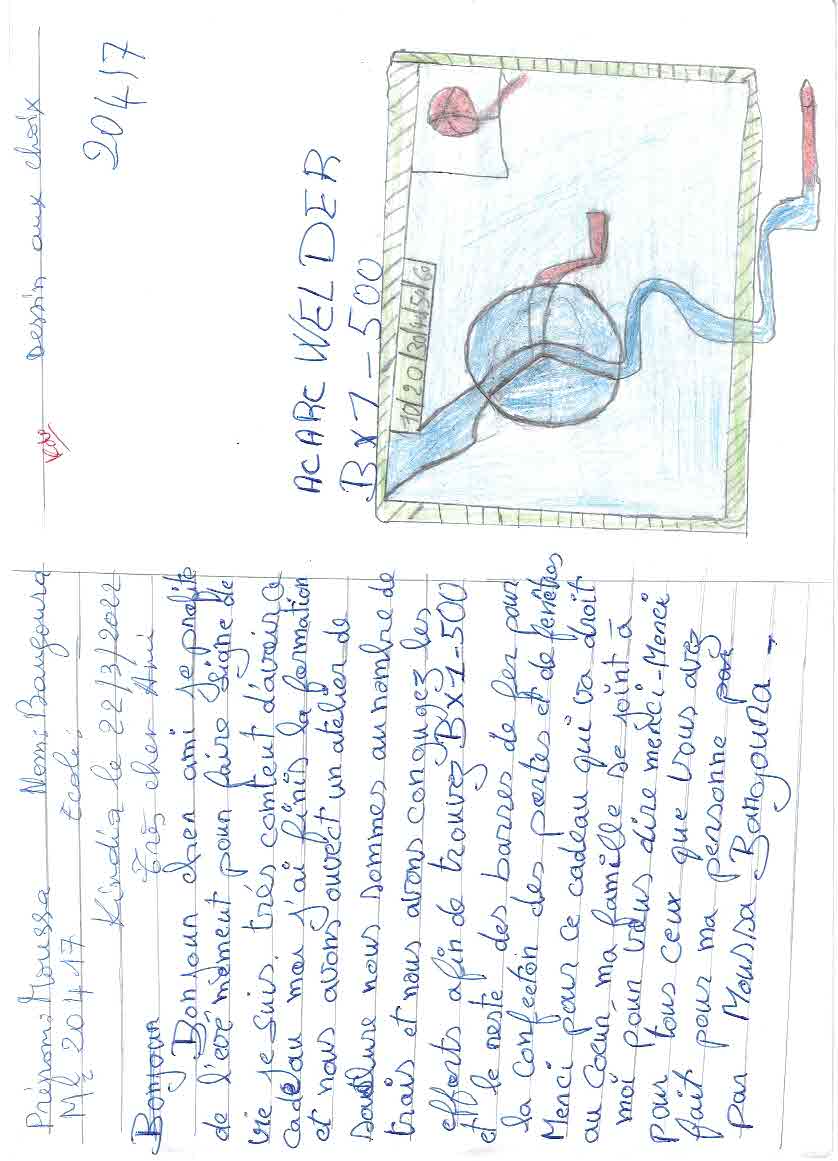 Prénom: Moussa Nom: Bangoura
Mle 20417 École:
Kindia le 22/3/2022
Bonjour très cher Ami
Bonjour cher ami je profite
de l'evènement pour faire signe de
vie je suis très comtent d'avoir ce
cadeau moi j'ai finis la formation
et nous avons ouvert un atelier de
Soudure nous sommes au nombre de
trois et nous avons conjugez les
efforts afin de trouvez BX1-500
et le reste des barres de fer pour
la confection des portes et de fenêtres
Merci pour ce cadeau qui va droit
au Cœur, ma famille se joint à
moi pour vous dire merci-Merci
pour tous ceux que vous avez
fait pour ma personne par
par Moussa Bangoura -
Dessin aux choix
20417
AC ARC WELDER
BX1-500
10/20/30/40/50/60